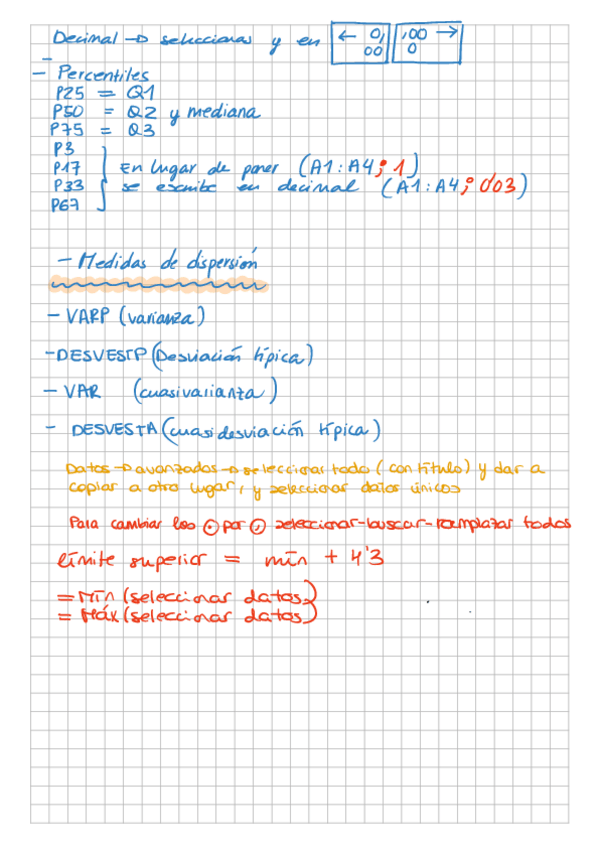 Decimal → seleccionas y en ← 0,00 ,00 → 0
- Percentiles
P25 = Q1
P50 = Q2 y mediana
P75 = Q3
P3
P17 En lugar de poner (A1:A4;1)
P33 se escribe en decimal (A1:A4;0'03)
P67
- Medidas de dispersión
- VARP (varianza)
- DESVESTP (Desviación típica)
- VAR (cuasivarianza)
- DESVESTA (cuasidesviación típica)
Datos → avanzados → seleccionar todo (con título) y dar a
copiar a otro lugar, y seleccionar datos únicos
Para cambiar los . por , seleccionar-buscar-remplazar todos
límite superior = mín + 4'3
= Mín (seleccionar datos)
= Máx (seleccionar datos)